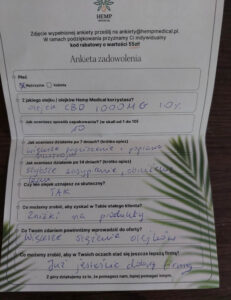 HEMP
Zdjęcie wypełnionej ankiety prześlij na ankiety@hempmedical.pl.
W ramach podziękowania przyznamy Ci indywidualny
kod rabatowy o wartości 55zł!
Ankieta zadowolenia
Płeć
Mężczyzna Kobieta
Z jakiego olejku i olejków Hemp Medical korzystasz?
olejek CBD 1000MG 10%
Jak oceniasz sposób zapakowania? (w skali od 1 do 10)
10
Jak oceniasz działanie po 7 dniach? (krótko opisz)
większe
Jak oceniasz działanie po 14 dniach? (krótko opisz)
szybsze zasypianie,
Czy ten olejek uznajesz za skuteczny?
TAK
Co możemy zrobić, aby zyskać w Tobie stałego klienta?
Zniżki na produkty
Co Twoim zdaniem powinniśmy wprowadzić do oferty?
Większe stężenie olejków
Co możemy zrobić, aby w Twoich oczach stać się jeszcze lepszą firmą?
Już jesteście dobrą firmą
Z góry dziękujemy za to, że pomagasz nam, lepiej pomagać innym.